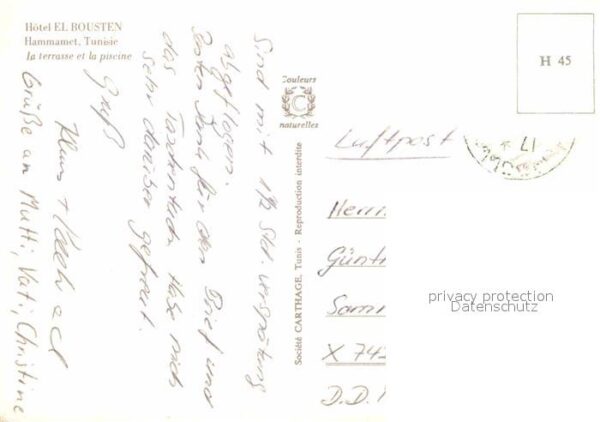 Hôtel EL BOUSTEN
Hammamet, Tunisie
la terrasse et la piscine
H 45
Couleurs
C
naturelles
Société CARTHAGE, Tunis - Reproduction interdite
Sind mit 1½ Std. Verspätung
abgeflogen.
Besten Dank für den Brief und
das Taschentuch. Habe mich
sehr darüber gefreut.
Gruß
Klaus +
Grüße an Mutti, Vati, Christine
Luftpost
17
Herrn
Günt
X 742
D.D.
privacy protection
Datenschutz